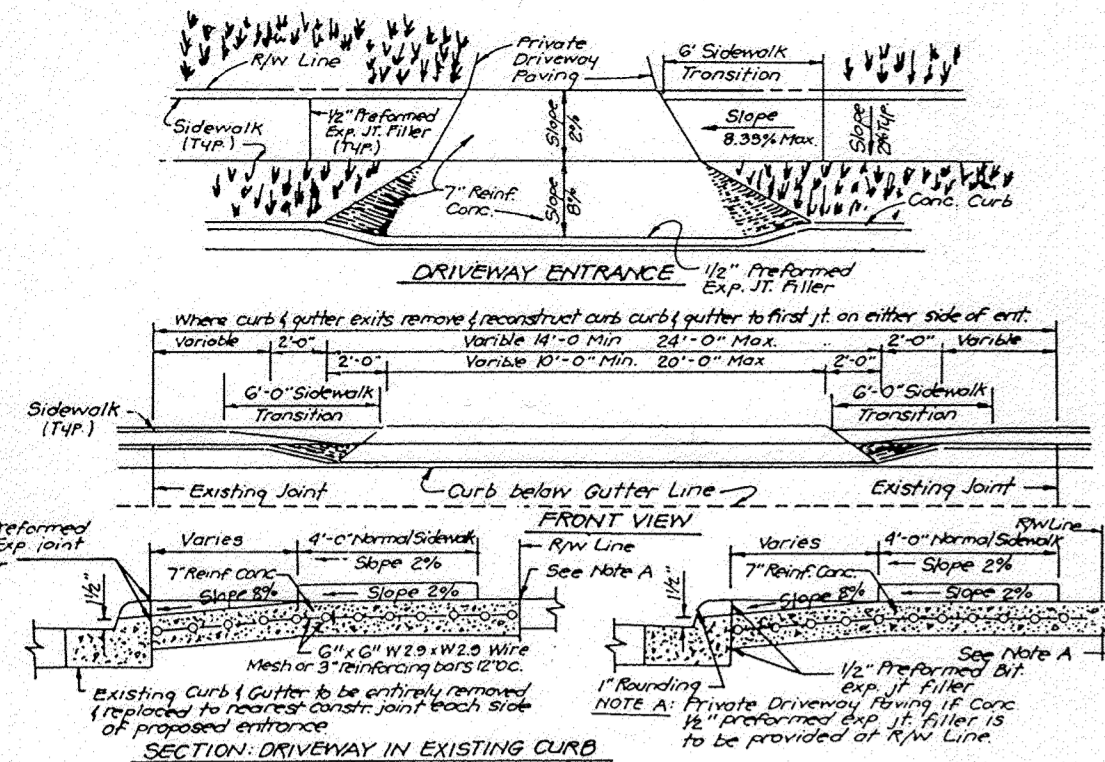 R/W Line
Private
Driveway
Paving
6' Sidewalk
Transition
Sidewalk
(Typ.)
1/2" Preformed
Exp. JT. Filler
(Typ.)
Slope
2%
Slope
8.33% Max.
Slope
2% Typ.
7" Reinf.
Conc.
Slope
8%
Conc. Curb
DRIVEWAY ENTRANCE
1/2" Preformed
Exp. JT. Filler
Where curb & gutter exits remove & reconstruct curb curb & gutter to first jt. on either side of ent.
Variable
2'-0"
Varible 14'-0 Min 24'-0" Max.
2'-0"
Varible
2'-0"
Varible 10'-0" Min. 20'-0" Max
2'-0"
6'-0" Sidewalk
Transition
6'-0" Sidewalk
Transition
Sidewalk
(Typ.)
Existing Joint
Curb below Gutter Line
Existing Joint
FRONT VIEW
Preformed
Exp. joint
Varies
4'-0" Normal Sidewalk
R/W Line
Slope 2%
See Note A
7" Reinf. Conc.
1 1/2"
Slope 8%
Slope 2%
6" x 6" W2.9 x W2.9 Wire
Mesh or 3" reinforcing bars 12" O.C.
Existing Curb & Gutter to be entirely removed
& replaced to nearest constr. joint each side
of proposed entrance
SECTION: DRIVEWAY IN EXISTING CURB
R/W Line
Varies
4'-0" Normal Sidewalk
Slope 2%
7" Reinf. Conc.
1 1/2"
Slope 8%
Slope 2%
See Note A
1" Rounding
1/2" Preformed Bit.
exp. jt filler
NOTE A: Private Driveway Paving if Conc
1/2" preformed exp. jt. filler is
to be provided at R/W Line.